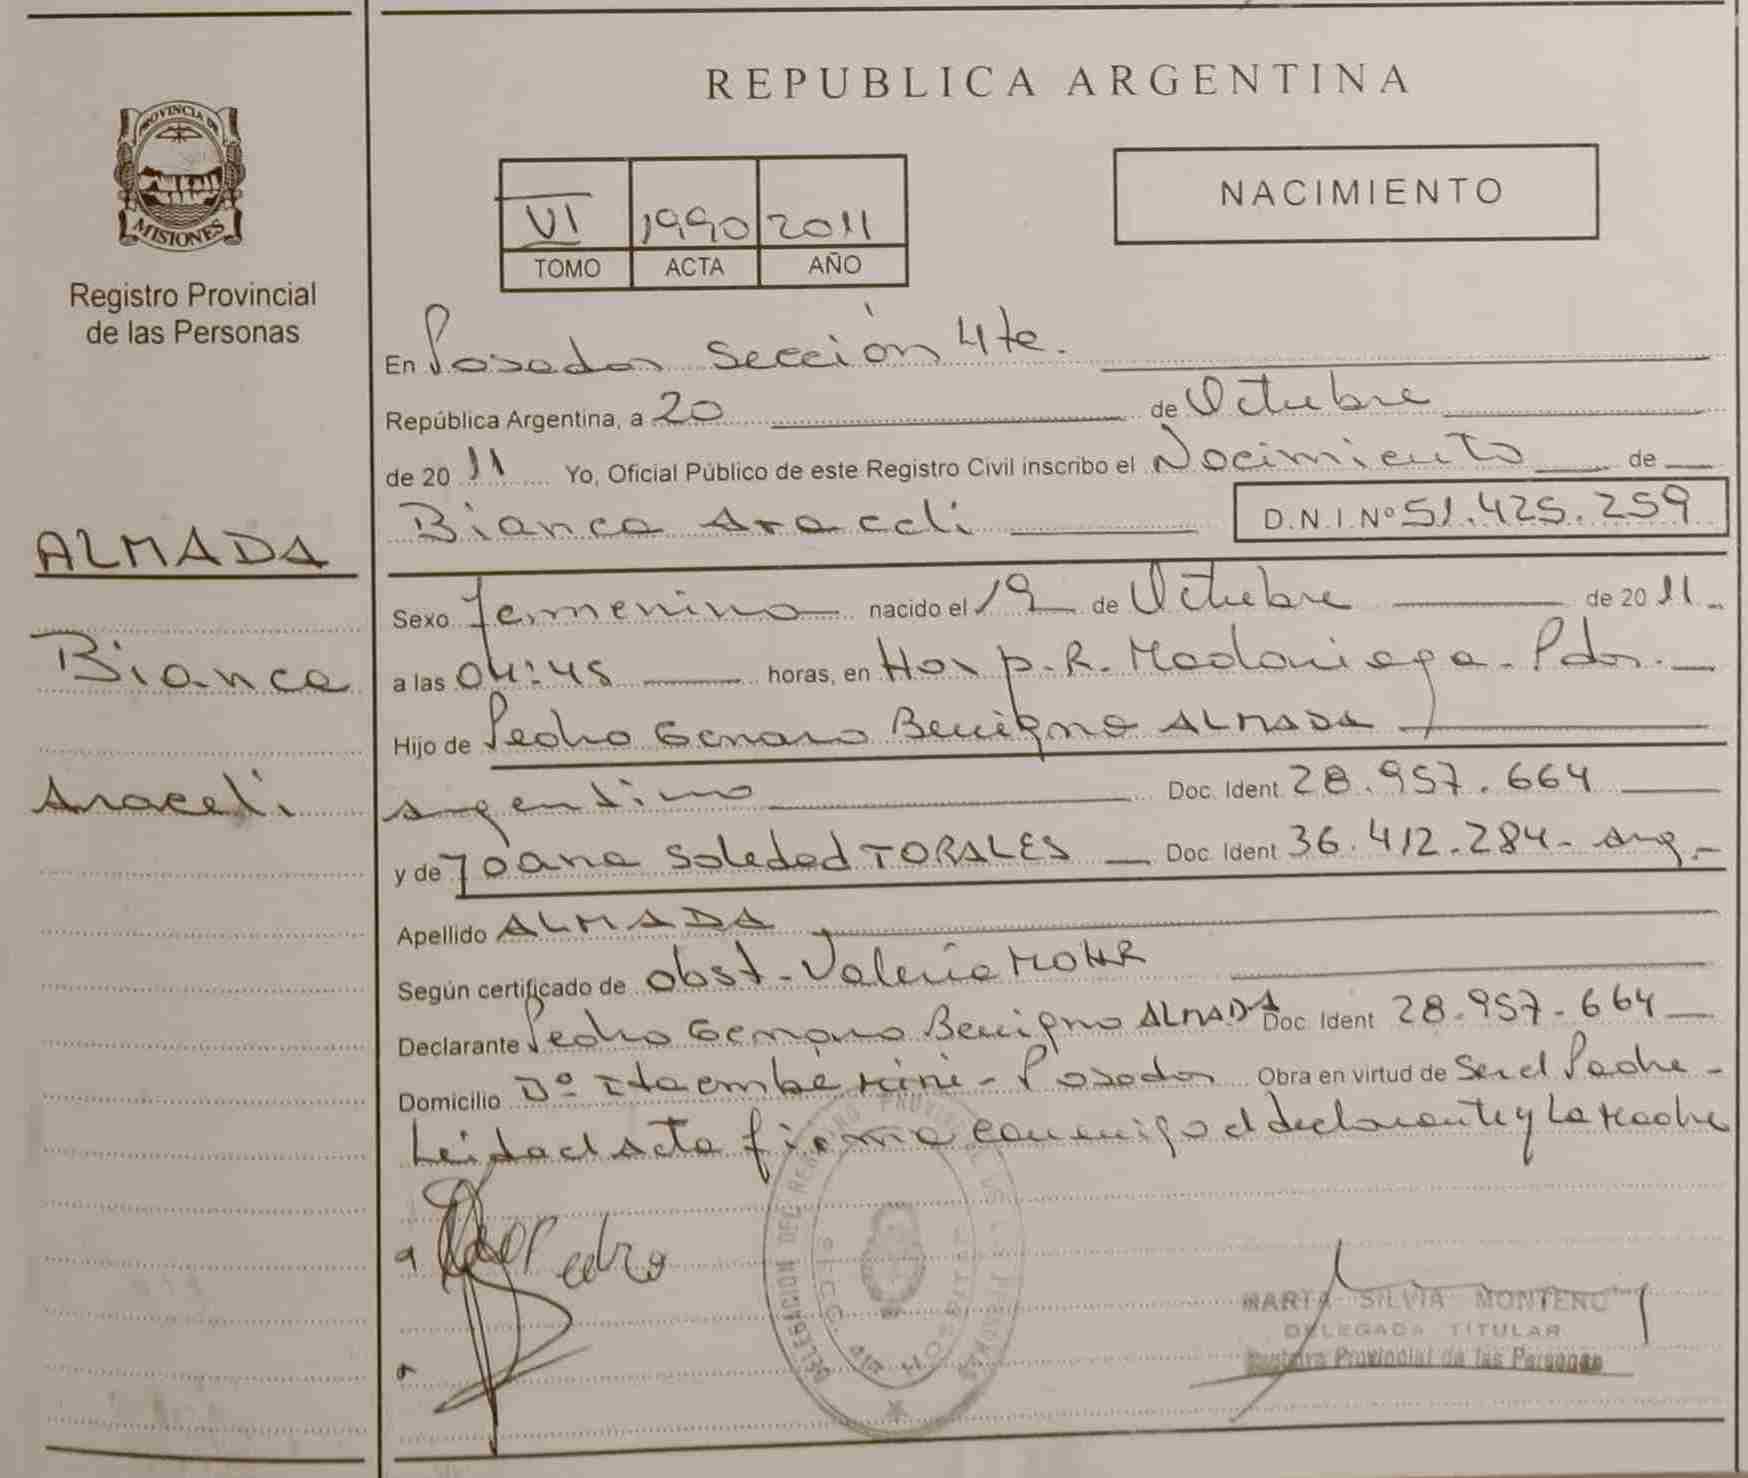 REPUBLICA ARGENTINA
PROVINCIA DE
MISIONES
Registro Provincial
de las Personas
NACIMIENTO
VI 1990 2011
TOMO ACTA AÑO
En Posadas sección 4ta.
República Argentina, a 20 de Octubre
de 20 11 Yo, Oficial Público de este Registro Civil inscribo el Nacimiento de
Bianca Araceli D.N.I. Nº 51.425.259
ALMADA
Bianca
Araceli
Sexo femenino nacido el 19 de Octubre de 20 11.
a las 04:45 horas, en Hosp. R. Madariaga - Pdas.
Hijo de Pedro Genaro Benigno ALMADA
argentino Doc. Ident 28.957.664
y de Joana Soledad TORALES Doc. Ident 36.412.284 - Arg.-
Apellido ALMADA
Según certificado de obst. Valeria MOHR
Declarante Pedro Genaro Benigno ALMADA Doc. Ident 28.957.664
Domicilio Bº Itaembé Miní - Posadas Obra en virtud de Ser el Padre -
Leida el Acta firma conmigo el declarante y La Madre
a Pedro
a
DELEGACION DEL REGISTRO PROVINCIAL DE LAS PERSONAS
MARTA SILVIA MONTENO
DELEGADA TITULAR
Registro Provincial de las Personas